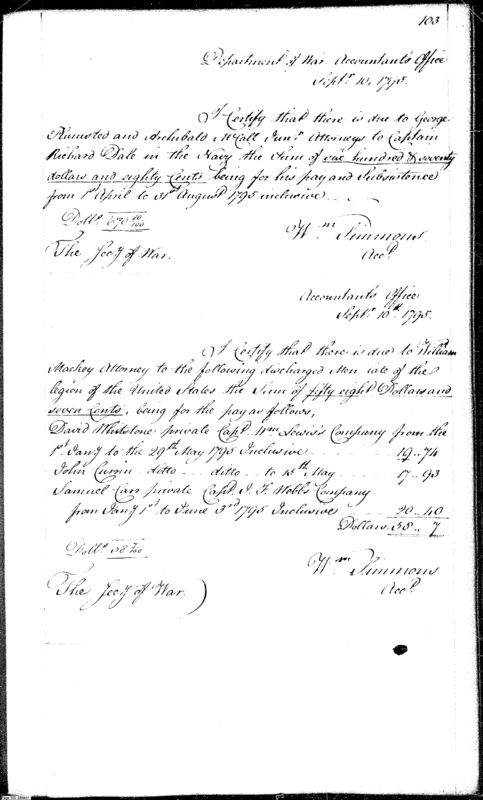 103
Department of War. Accountant's Office
Septr. 10, 1795.
I Certify that there is due to George
Plumsted and Archibald McCall Junr. Attorneys to Captain
Richard Dale in the Navy the Sum of six hundred & seventy
dollars and eighty Cents being for his pay and Subsistence
from 1st April to 31st August 1795 inclusive
Dolls. 670 80/100
Wm Simmons
The Secy of War.
Acct.
Accountant's Office
Septr. 10th. 1795.
I Certify that there is due to William
Mackey Attorney to the following discharged Men late of the
legion of the United States the Sum of fifty eight Dollars and
seven Cents, being for the pay as follows,
David Whitstone private Capt. Wm. Lewis's Company from the
1st. Jany to the 29th May 1795 Inclusive 19..74
John Curvin ditto ditto to 15th May 17..93
Samuel Carr private Capt. J. F. Webb's Company
from Jany 1st to June 3rd 1795 Inclusive 20..40
Dollars 58..7
Dolls. 58 7/100
Wm Simmons
The Secy of War.)
Acct.